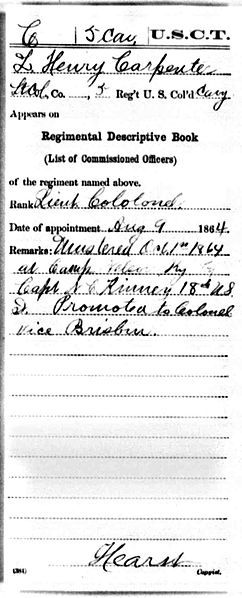 C 5 Cav. U.S.C.T.
L Henry Carpenter
Co. , 5 Reg't U. S. Col'd Cav'y
Appears on
Regimental Descriptive Book
(List of Commissioned Officers)
of the regiment named above.
Rank Lieut Colonel
Date of appointment Aug 9 , 1864
Remarks: Mustered Oct 1st 1864
at Camp Ky by
Capt Kinney 18th U.S.
I. Promoted to Colonel
vice Brisbin.
Hearst
(384) Copyist.